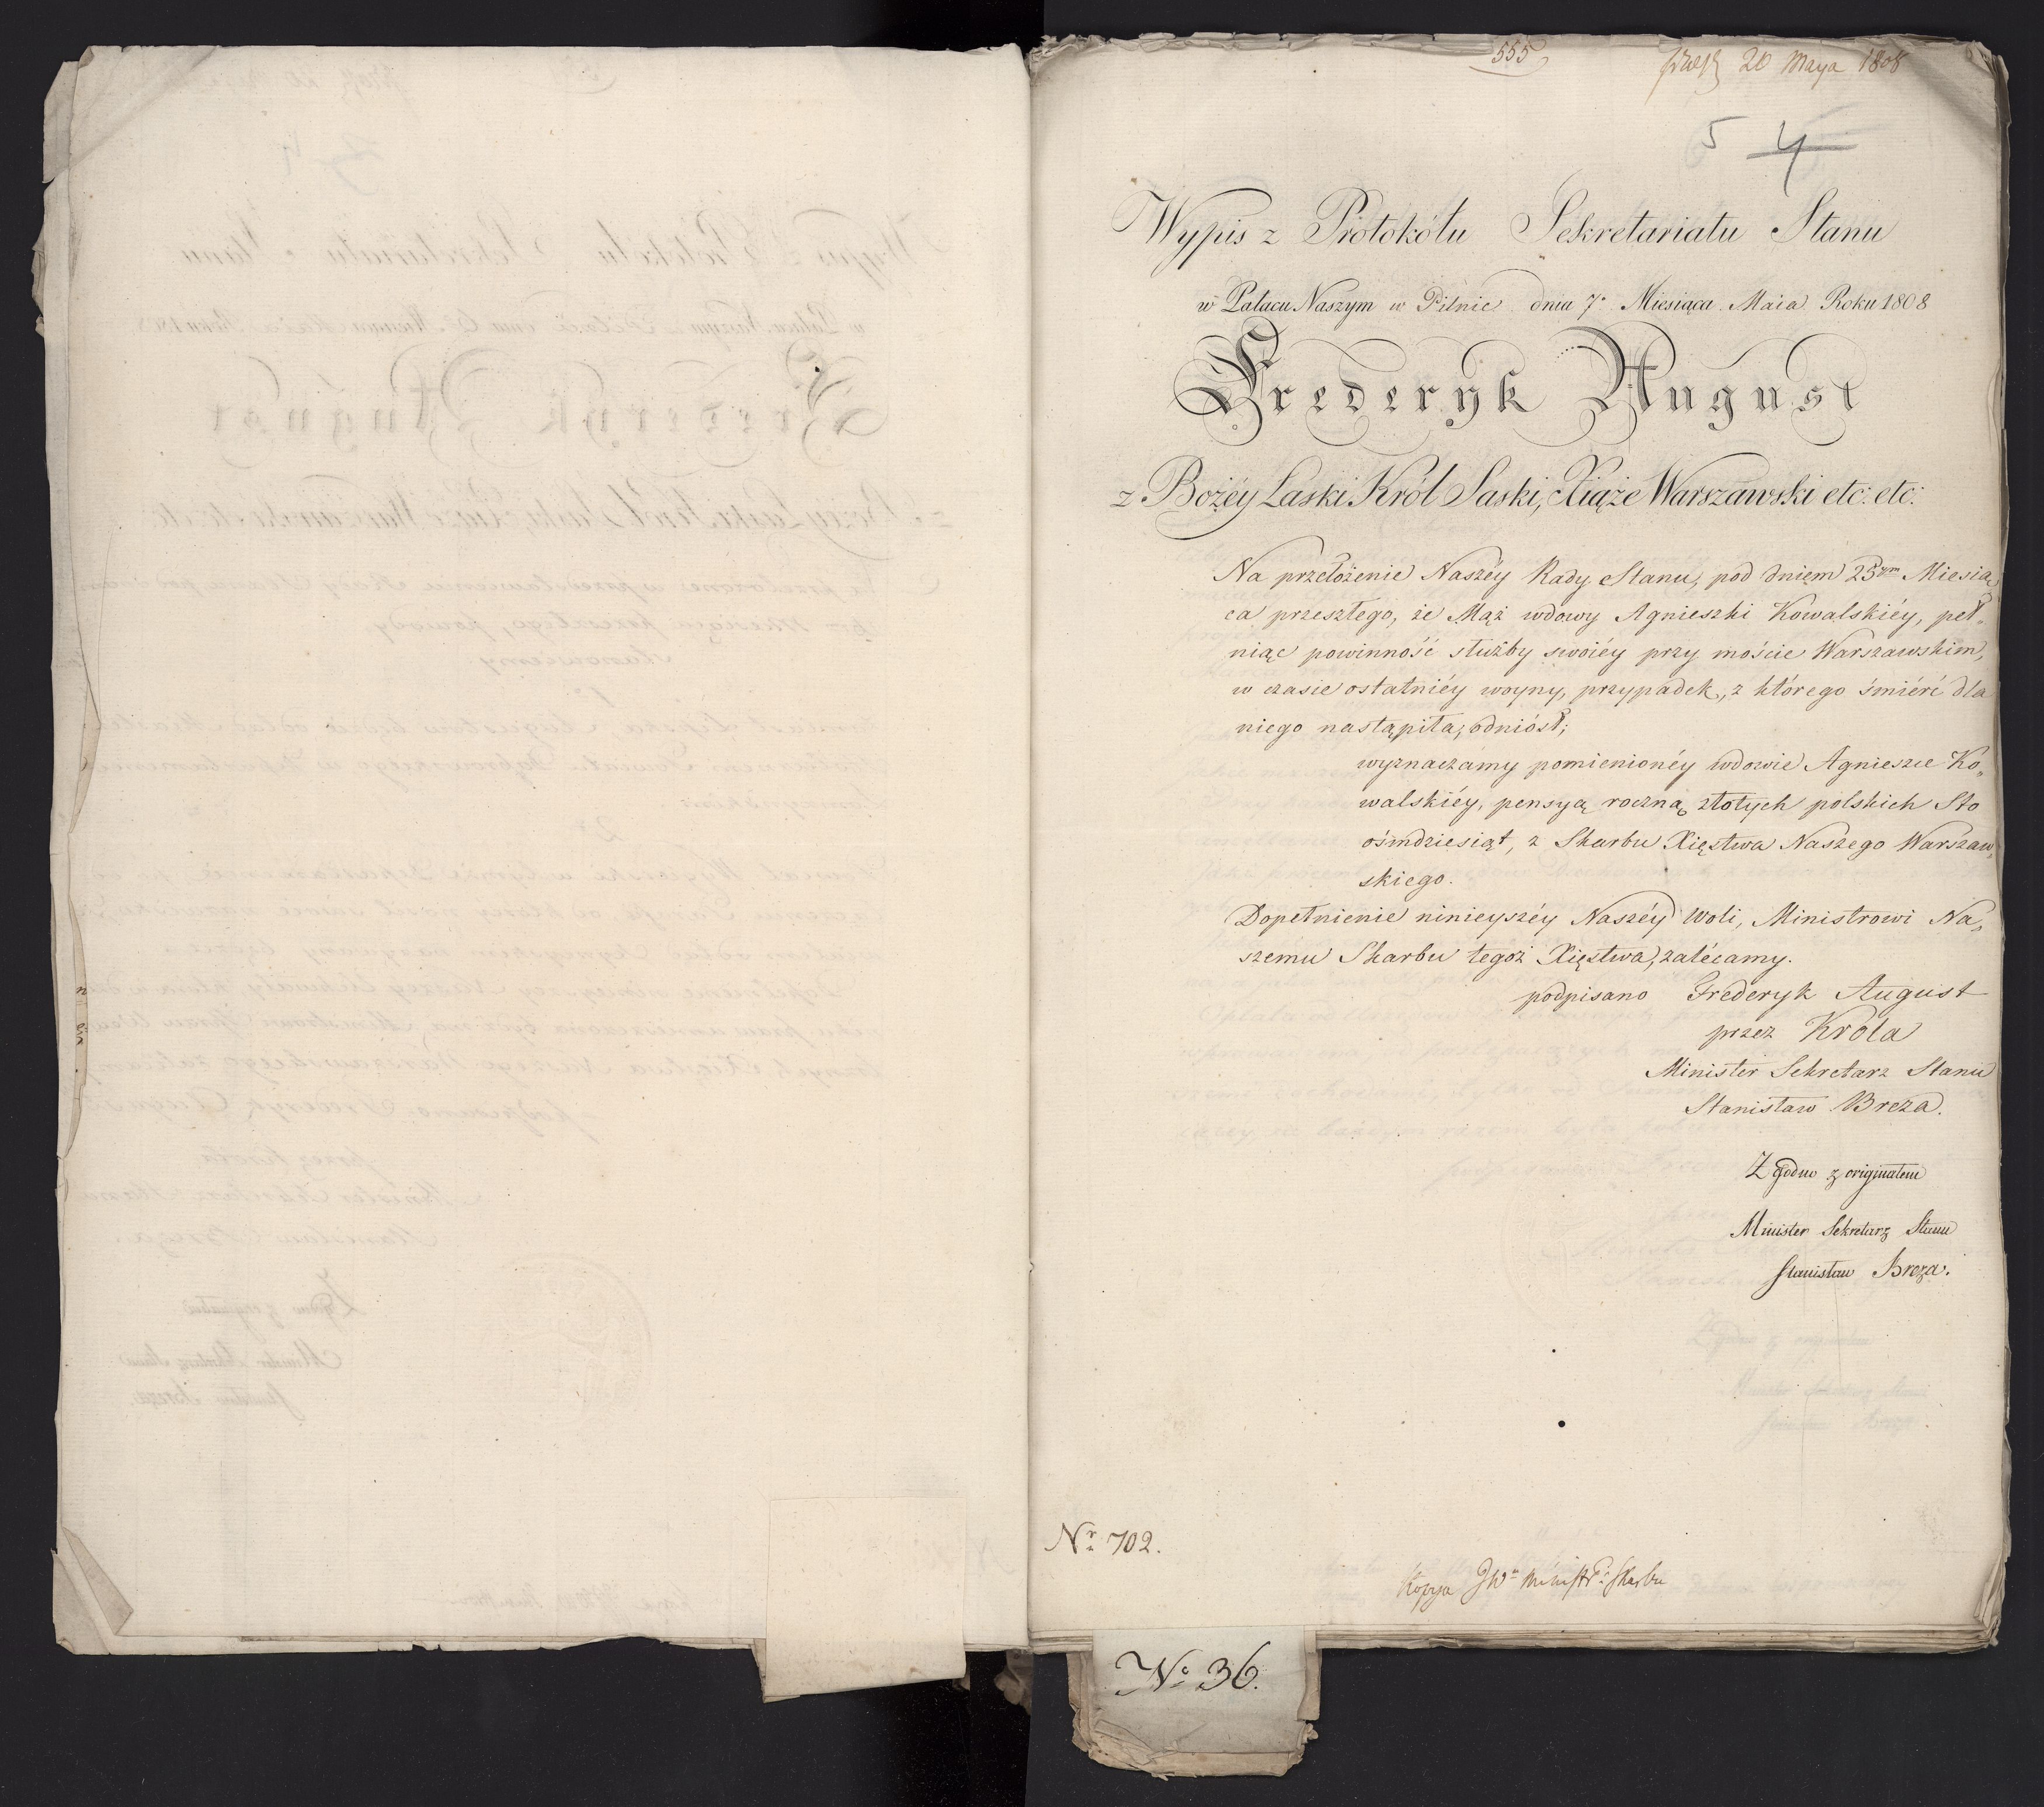 555
20 Maya 1808
5 4
Wypis z Protokółu Sekretariatu Stanu
w Pałacu Naszym w Pilnic dnia 7º Miesiąca Maia Roku 1808
Frederyk August
z Bożéy Łaski Król Saski, Xiąże Warszawski etc: etc:
Na przełożenie Naszéy Rady Stanu, pod dniem 25ym Miesią„
ca przeszłego, że Mąż wdowy Agnieszki Kowalskiéy, peł„
niąc powinność służby swoiéy przy moście Warszawskim,
w czasie ostatniéy woyny, przypadek, z którego śmiérć dla
niego nastąpiła, odniósł;
wyznaczamy pomienionéy wdowie Agnieszce Ko„
walskiéy, pensyą roczną złotych polskich Sto
ośmdziesiąt, z Skarbu Xięstwa Naszego Warszaw„
skiego.
Dopełnienie ninieyszéy Naszéy Woli, Ministrowi Na„
szemu Skarbu tegoż Xięstwa, zalécamy.
podpisano Frederyk August
przez Króla
Minister Sekretarz Stanu
Stanisław Breza.
Zgodno z originałem
Minister Sekretarz Stanu
Stanisław Breza.
Nr 702.
Kopya JWu Ministr: Skarbu
No 36.